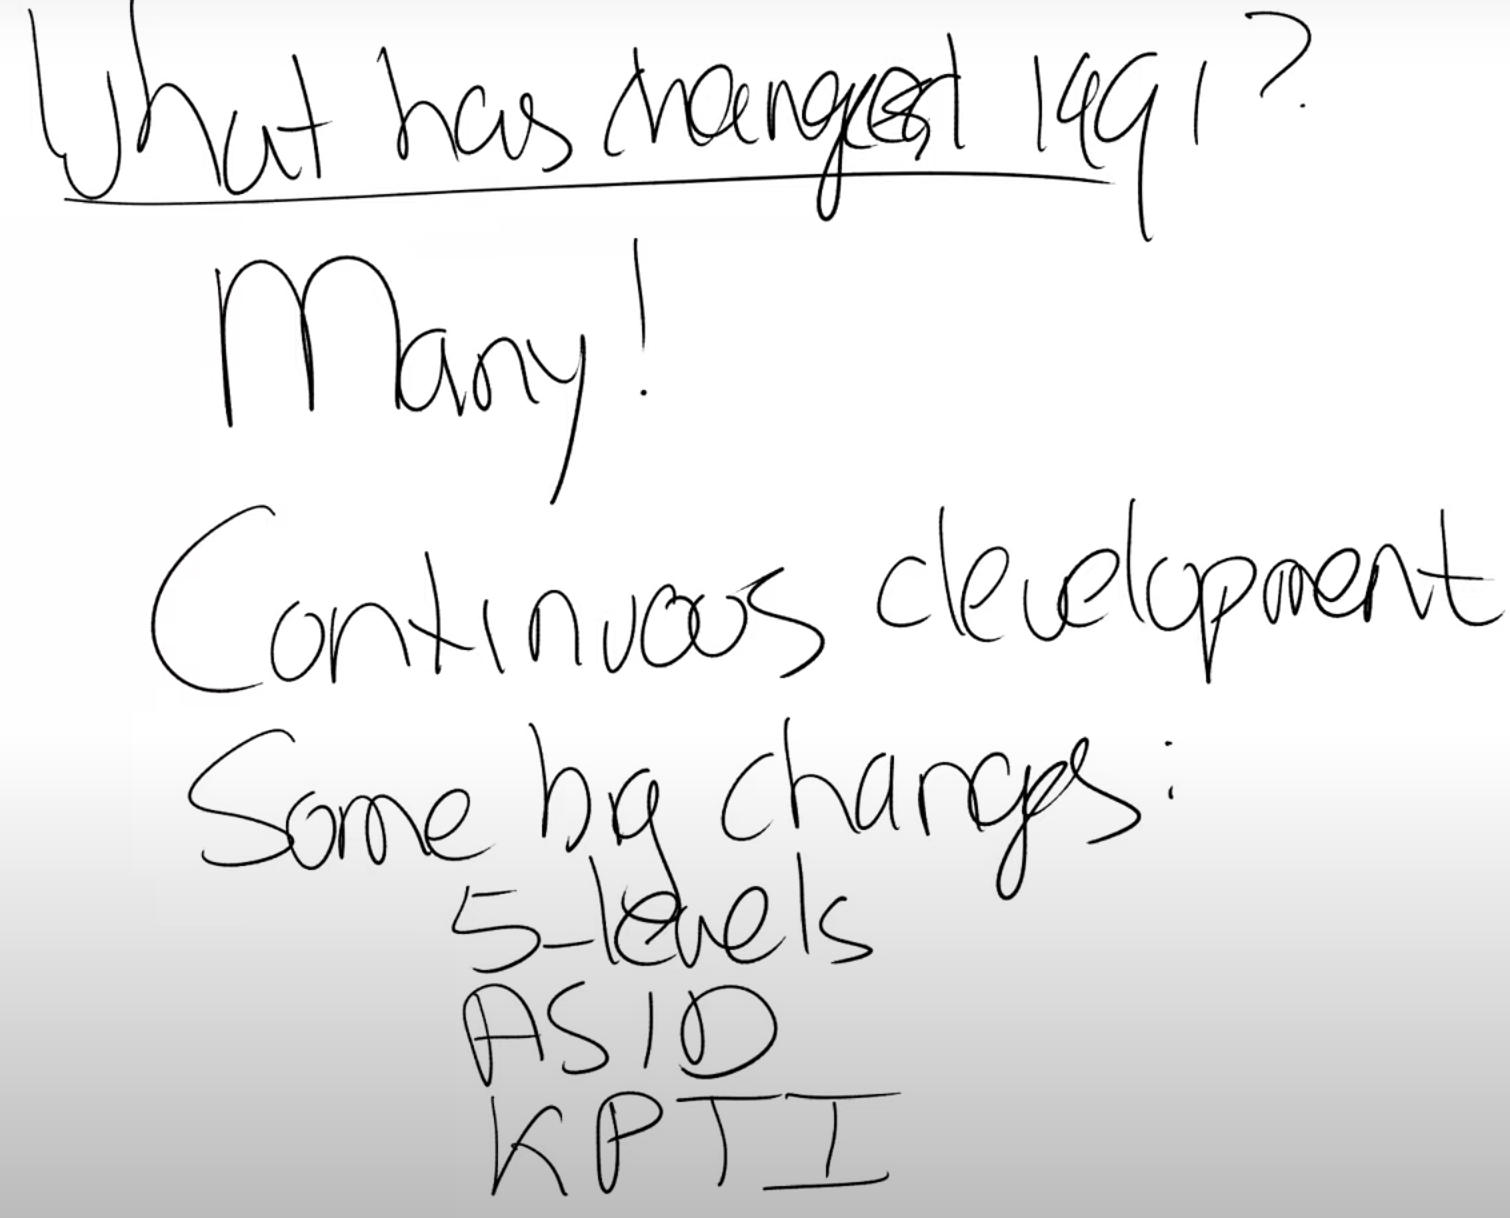 What has changed 1991?
Many!
Continuous development
Some big changes:
5-levels
ASID
KPTI